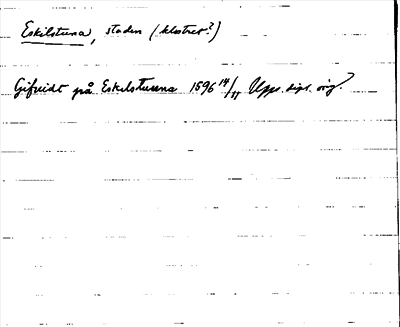 Eskilstuna, staden (klostret?)
Gifvidt på Eskilstuna 1596 14/11 Upps. dipl. orig.